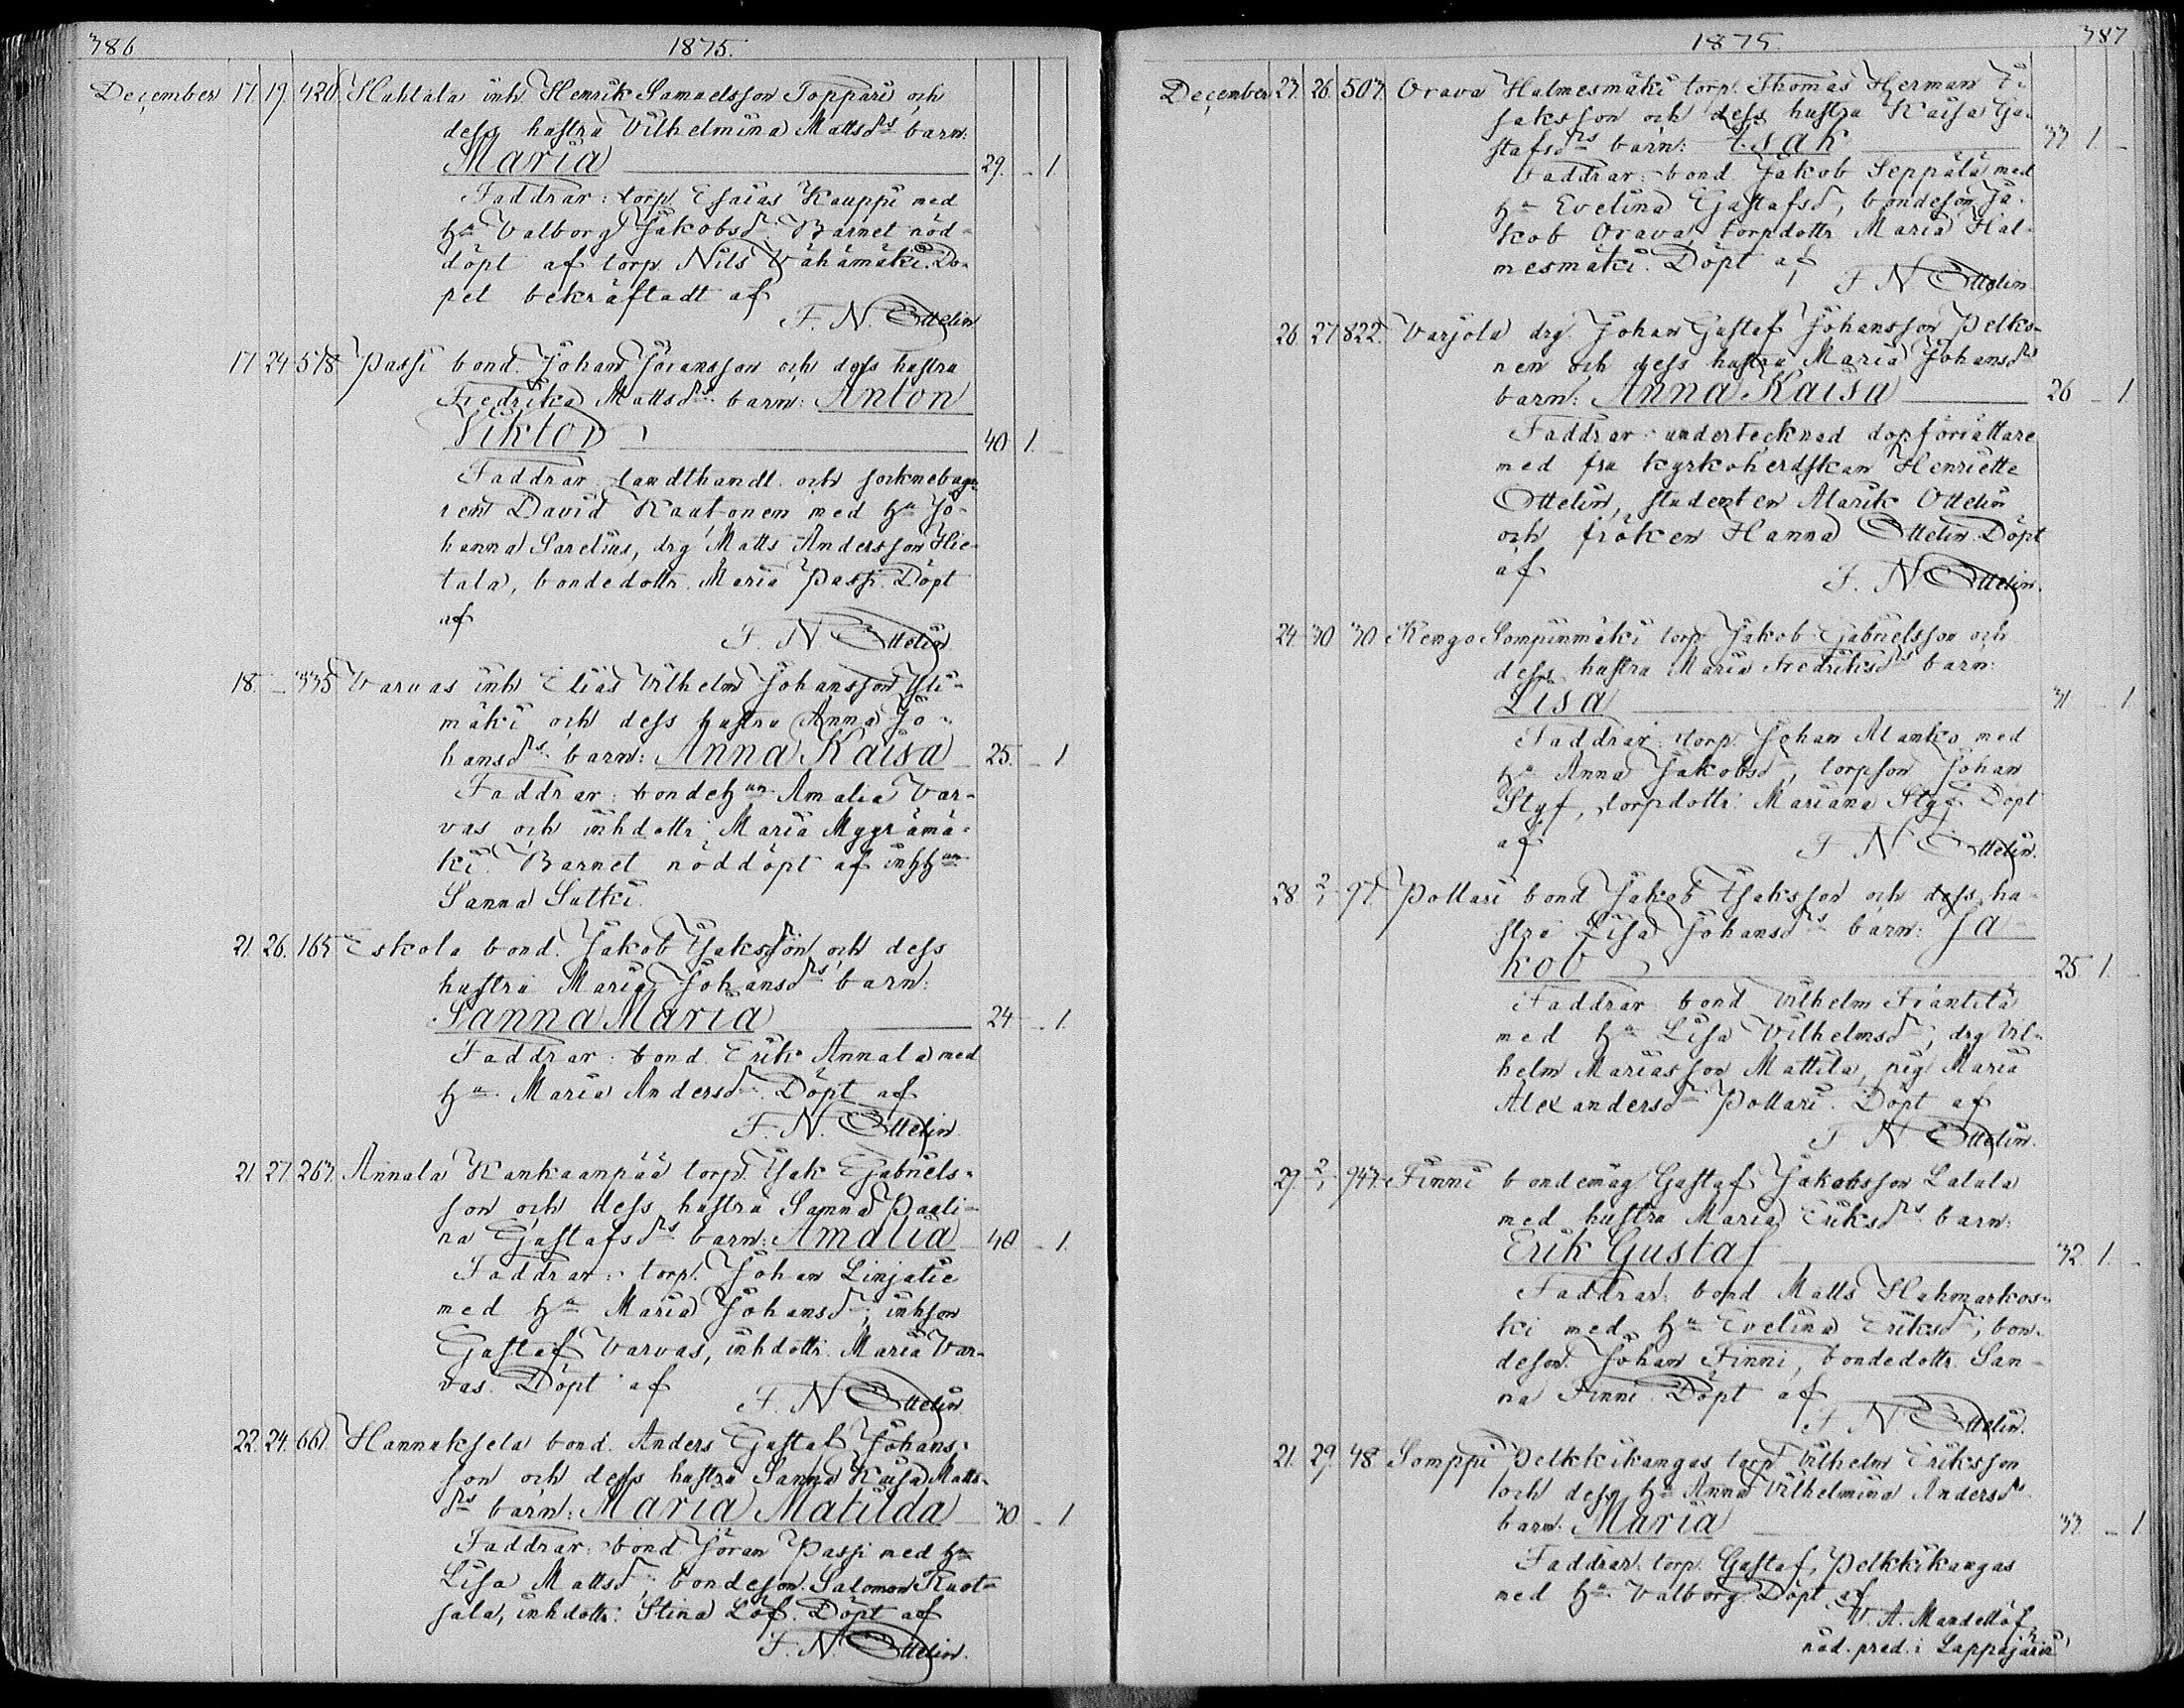 386 1875.
December 17. 19. 420. Hahtala inh. Henrik Samuelsson Toppari och
dess hustru Vilhelmina Mattsdrs barn:
Maria 29. - 1
Faddrar: torp. Esaias Kauppi med
hu Valborg Jakobsd. Barnet nöd-
döpt af torp. Nils Vähämäki. Do-
pet bekräftadt af
F. N. Ottelin
17 24 578 Passi bond. Johan Jöransson och dess hustru
Fredrika Mattsdrs barn: Anton
Viktor 40 1. -
Faddrar landthandl. och socknebaga-
ren David Rautonen med hu Jo-
hanna Sarelius, drg Matts Andersson Hie-
tala, bondedottr. Maria Passi. Döpt
af
F. N Ottelin
18. - 335 Varvas inh Elias Vilhelm Johansson Yli-
mäki och dess hustru Anna Jo-
hansdrs barn: Anna Kaisa 25. - 1
Faddrar: bondehun Amalia Var-
vas och inhdottr Maria Myyrämä-
ki. Barnet nöddöpt af inhhun
Sanna Sulki.
21. 26. 165 Eskola bond. Jakob Isaksson och dess
hustru Maria Johansdrs barn:
Sanna Maria 24 - 1.
Faddrar: bond. Erik Annala med
hu Maria Andersdr. Döpt af
F. N. Ottelin
21. 27. 263. Annala Kankaanpää torp. Isak Gabriels-
son och dess hustru Sanna Pauli-
na Gustafsdrs barn: Amalia 40 - 1.
Faddrar: torp. Johan Linjalie
med hu Maria Johansd; inhson
Gustaf Varvas, inhdottr. Maria Var-
vas. Döpt af
F. N Ottelin
22. 24. 661. Hannuksela bond. Anders Gustaf Johans-
son och dess hustru Sanna Kaisa Matts-
drs barn: Maria Matilda 30. - 1
Faddrar: bond Jöran Passi med hu
Lisa Mattsd, bondeson. Salomon Ruot-
sala, inhdottr. Stina Löf. Döpt af
F. N. Ottelin.
1875. 387
December 23. 26. 503. Orava Halmesmäki torp. Thomas Herman I-
saksson och dess hustru Kaisa Gu-
stafsdrs barn: Isak 33 1. -
Faddrar: bond. Jakob Seppälä med
hu Evelina Gustafsd, bondeson Ja-
kob Orava, torpdottr Maria Hal-
mesmäki. Döpt af
F N Ottelin
26. 27 822. Varjola drg. Johan Gustaf Johansson Pelko-
nen och dess hustru Maria Johansdrs
barn: Anna Kaisa 26 - 1
Faddrar: undertecknad dopförrättare
med fru kyrkoherdskan Henriette
Ottelin, studenten Alarik Ottelin
och fröken Hanna Ottelin. Döpt
af
F. N Ottelin.
24. 30 30 Kengo Sompinmäki torp Jakob Gabrielsson och
dess hustru Maria Fredriksdrs barn:
Lisa 31 - 1
Faddrar: torp. Johan Alanko med
hu Anna Jakobsd, torpson Johan
Styf, torpdottr. Mariana Styf. Döpt
af
F N Ottelin.
28. 2/1 97. Pollari bond Jakob Isaksson och dess hu-
stru Lisa Johansdrs barn: Ja-
kob 25 1. -
Faddrar: bond Vilhelm Frantila
med hu Lisa Vilhelmsd, drg Vil-
helm Mariasson Mattila, pig Maria
Alexandersdr Pollari. Döpt af
F N Ottelin.
29. 2/1 943. Finni bondemåg Gustaf Jakobsson Lalula
med hustru Maria Eriksdrs barn:
Erik Gustaf 32 1. -
Faddrar: bond Matts Hahmarkos-
ki med hu Evelina Eriksd, bon-
deson Johan Finni, bondedottr San-
na Finni. Döpt af
F. N. Ottelin.
21. 29. 48. Somppi Pelkkikangas torp Vilhelm Eriksson
och dess hu Anna Vilhelmina Andersdrs
barn. Maria 33. - 1
Faddrar. torp. Gustaf Pelkkikangas
med hu Valborg. Döpt af
V. A. Mandellöf
nåd. pred. i Lappajärvi